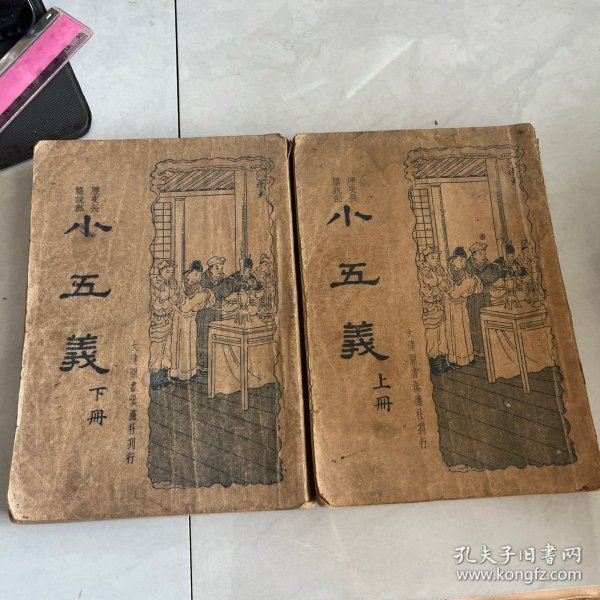 歷史長
篇說部
小五義
下冊
大連圖書供應社刊行
歷史長
篇說部
小五義
上冊
大連圖書供應社刊行
孔夫子旧书网
www.kongfz.com